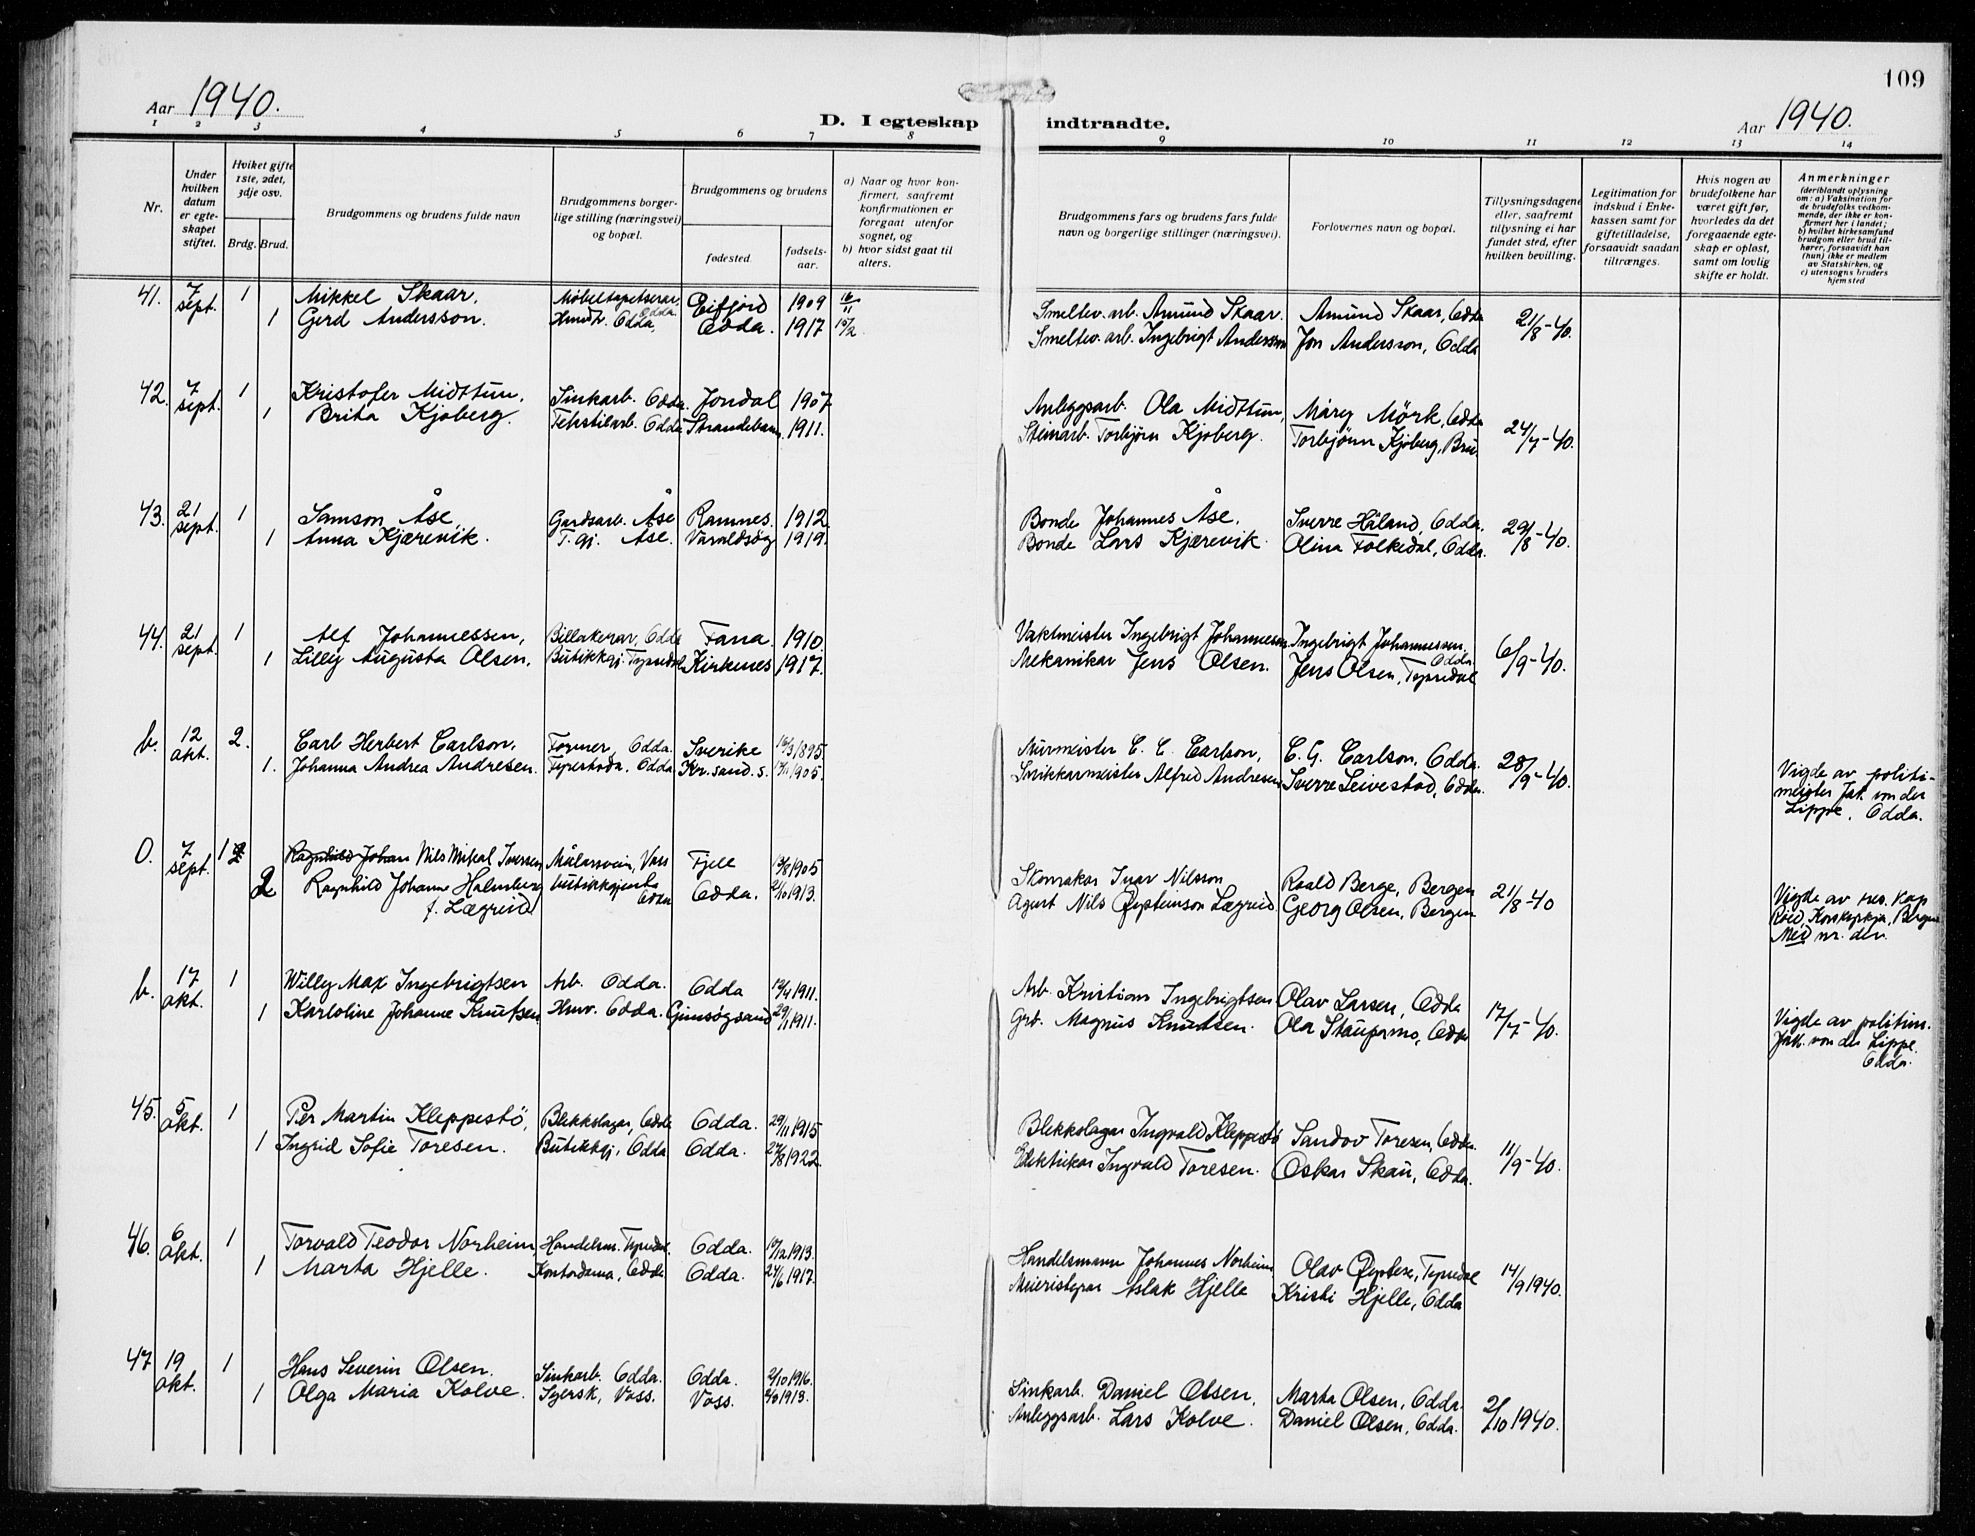 109
Aar 1940.
D. I egteskap indtraadte.
Aar 1940.
1 2 3 4 5 6 7 8 9 10 11 12 13 14
Nr.
Under hvilken datum er egteskapet stiftet.
Hviket gifte 1ste, 2det, 3dje osv.
Brdg. Brud.
Brudgommens og brudens fulde navn
Brudgommens borgerlige stilling (næringsvei) og bopæl.
Brudgommens og brudens
fødested. fødselsaar.
a) Naar og hvor konfirmert, saafremt konfirmationen er foregaat utenfor sognet, og
b) hvor sidst gaat til alters.
Brudgommens fars og brudens fars fulde navn og borgerlige stillinger (næringsvei).
Forlovernes navn og bopæl.
Tillysningsdagene eller, saafremt tillysning ei har fundet sted, efter hvilken bevilling.
Legitimation for indskud i Enkekassen samt for giftetilladelse, forsaavidt saadan tiltrænges.
Hvis nogen av brudefolkene har været gift før, hvorledes da det foregaaende egteskap er opløst, samt om lovlig skifte er holdt.
Anmerkninger
(deriblandt oplysning om: a) Vaksination for de brudefolks vedkommende, der ikke er konfirmert her i landet; b) hvilket kirkesamfund brudgom eller brud tilhører, forsaavidt han (hun) ikke er medlem av Statskirken, og c) utensogns bruders hjemsted
41. 7 sept. 1 Mikkel Skaar, Møbeltapetserar, Odda. Eifjord 1909 16/11 Smeltev. arb. Amund Skaar. Amund Skaar, Odda 21/8-40.
1 Gerd Andersson. Odda, Odda. 1917 Smeltev. arb. Ingebrigt Andersson Jon Andersson, Odda
42. 7 sept. 1 Kristofer Midttun, Sinkarb. Odda Jondal 1907 Anleggsarb. Ola Midttun, Mary Mörk, Odda 24/7-40.
1 Brita Kjoberg. Tekstilarb. Odda Strandebarm 1911. Steinarb. Torbjörn Kjoberg. Torbjörn Kjöberg, Bru.
43. 21 sept. 1 Samson Åse, Gardsarb. Åse Ramnes. 1912. Bonde Johannes Åse. Sverre Håland, Odda. 29/8-40.
1 Anna Kjærevik. T. gj. Åse. Varaldsøy 1919. Bonde Lars Kjærevik. Olina Folkedal, Odda.
44. 21 sept. 1 Alf Johannessen, Billakerar, Odda Fana. 1910. Vaktmeister Ingebrigt Johannessen Ingebrigt Johannessen, Odda. 6/9-40.
1 Lilly Augusta Olsen. Butikkgj. Tyssedal Kirkenes 1917. Mekanikar Jens Olsen. Jens Olsen, Tyssedal
b. 12 okt. 2. Carl Herbert Carlson, Former, Odda. Sverike 16/3 1895. Murmeister C. C. Carlson, C. G. Carlson, Odda. 28/9-40.
1. Johanna Andrea Andresen. Odda Kr.sand. S. 1905. Alfred Andresen Sverre Seivestad, Odda. Vigde av politimeister Jak. von der Lippe, Odda.
O. 7 sept. 1 Nils Mikal Iversen Målarsvein, Voss Fjell 13/8 1905 Skomakar Ivar Nilsson Roald Berge, Bergen 21/8-40
2 Ragnhild Johanne Holmberg f. Lægreid butikkgjenta Odda Odda. 1913. Agent Nils Øysteinson Lægreid Georg Olsen, Bergen Vigde av res. kap Röed, Korskyrkja, Bergen Med nr. der.
b. 17 okt. 1 Willy Max Ingebrigtsen Arb. Odda. Odda 1911. Arb. Kristian Ingebrigtsen Olav Larsen, Odda 17/7-40.
1 Karloline Johanne Knutsen Hmv. Odda. Gimsøysand 29/1 1911. Grb. Magnus Knudsen. Ola Odda Vigde av politim. Jak. von der Lippe. Odda.
45. 5 okt. 1 Per Martin Kleppestö, Blekkslagar, Odda Odda. 29/11 1915 Blekkslagar Ingvald Kleppestö Sandov Toresen, Odda. 11/9-40.
1 Ingrid Sofie Toresen. Butikkgj. Odda Odda. 27/8 1922. Elektrikar Ingvald Toresen. Oskar Skau, Odda.
46. 6 okt. 1 Torvald Teodor Norheim, Handelsm. Tyssedal. Odda. 1913. Handelsmann Johannes Norheim Olav Øystese, Tyssedal 14/9 1940.
1 Marta Hjelle. Kontordama, Odda Odda. 24/6 1917. Meieristyrar Aslak Hjelle Kristi Hjelle, Odda
47 19 okt. 1 Hans Severin Olsen. Sinkarb. Odda. Odda. 2/10 1916. Sinkarb. Daniel Olsen, Marta Olsen, Odda. 2/10 1940.
1 Olga Maria Kolve. Syersk, Voss. Voss. 1913. Anleggsarb. Lars Kolve. Daniel Olsen, Odda.